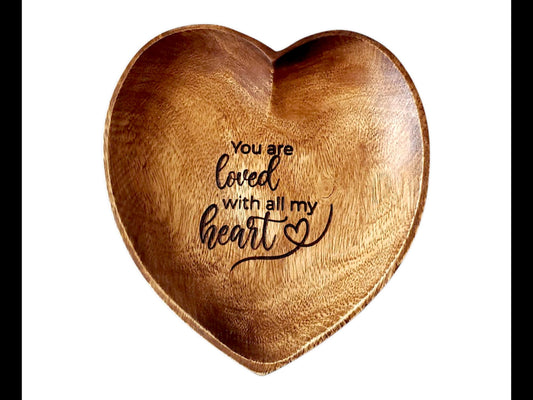 You are
loved
with all my
heart